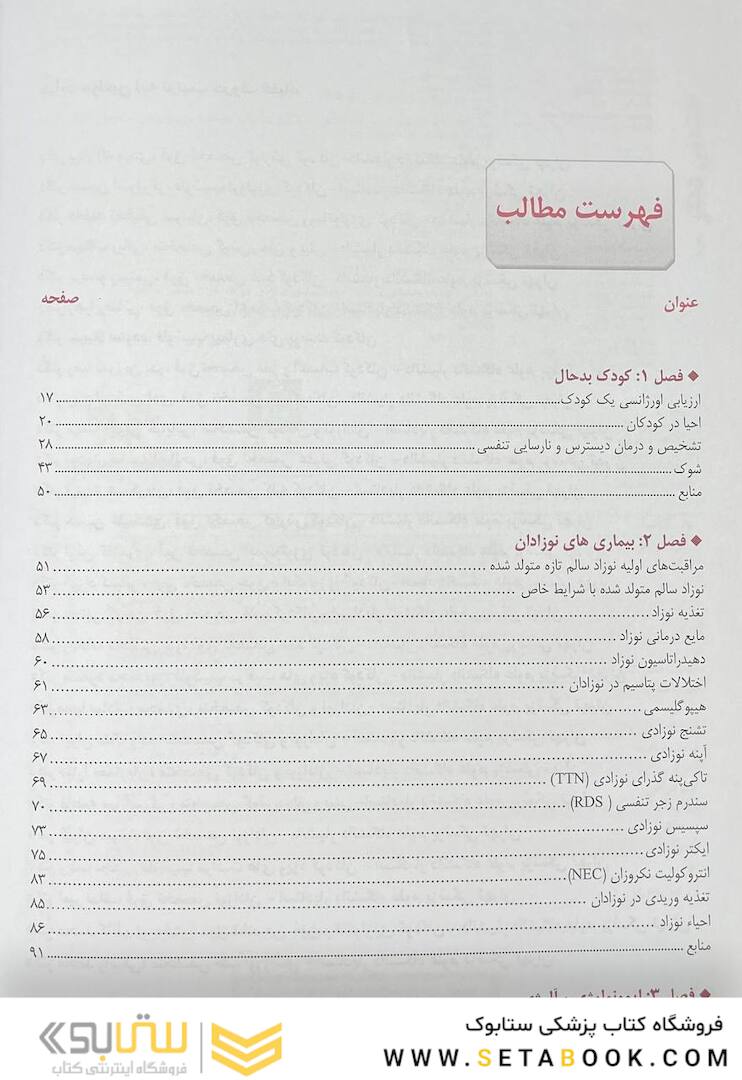 فهرست مطالب
عنوان صفحه
◆ فصل ۱: کودک بدحال
ارزیابی اورژانسی یک کودک ........ ۱۷
احیا در کودکان ........ ۲۰
تشخیص و درمان دیسترس و نارسایی تنفسی ........ ۲۸
شوک ........ ۴۳
منابع ........ ۵۰
◆ فصل ۲: بیماری های نوزادان
مراقبت‌های اولیه نوزاد سالم تازه متولد شده ........ ۵۱
نوزاد سالم متولد شده با شرایط خاص ........ ۵۳
تغذیه نوزاد ........ ۵۶
مایع درمانی نوزاد ........ ۵۸
دهیدراتاسیون نوزاد ........ ۶۰
اختلالات پتاسیم در نوزادان ........ ۶۱
هیپوگلیسمی ........ ۶۳
تشنج نوزادی ........ ۶۵
آپنه نوزادی ........ ۶۷
تاکی‌پنه گذرای نوزادی (TTN) ........ ۶۹
سندرم زجر تنفسی ( RDS) ........ ۷۰
سپسیس نوزادی ........ ۷۳
ایکتر نوزادی ........ ۷۵
انتروکولیت نکروزان (NEC) ........ ۸۳
تغذیه وریدی در نوزادان ........ ۸۵
احیاء نوزاد ........ ۸۶
منابع ........ ۹۱
◆ فصل ۳:
فروشگاه کتاب پزشکی ستابوک
WWW.SETABOOK.COM
ستابوک
فروشگاه اینترنتی کتاب